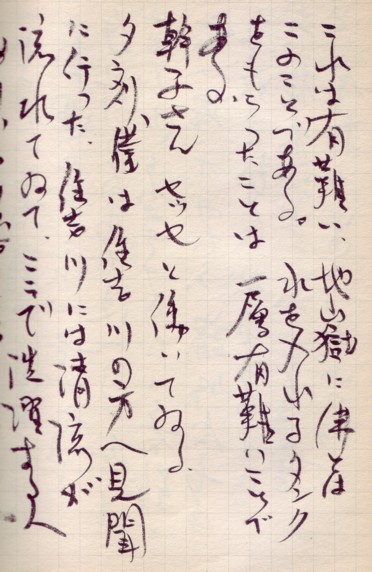 これは有難い、地獄に佛とは
このことである。水を入れるタンク
をもらったことは一層有難いことで
ある。
幹子さん せっせと働いてゐる。
夕刻、僕は住吉川の方へ見聞
に行った、住吉川には清流が
流れてゐて、ここで洗濯する人